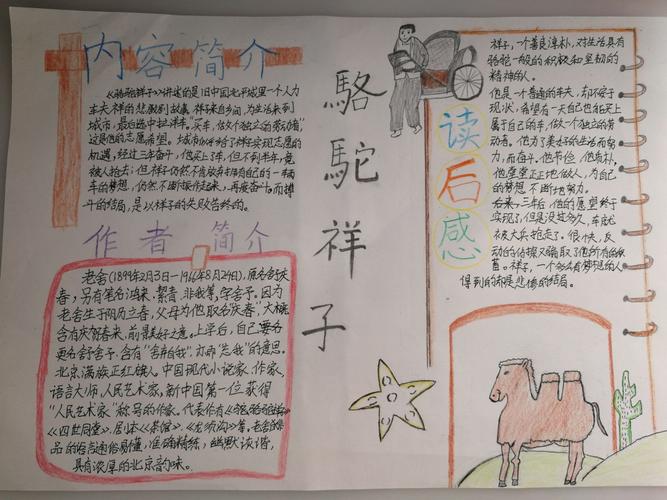 内容简介
《骆驼祥子》讲述的是旧中国老北京城里一个人力
车夫祥子的悲剧故事。祥子来自乡间,为生活来到
城市,最后选中拉洋车。"买车,做个独立的劳动者"
这是他的志愿希望。城市似乎给了祥子实现志愿的
机遇,经过三年奋斗,他买上了车,但不到半年,竟
被人抢去;但祥子仍然不放弃拥有自己的一辆
车的梦想,仍然不断振作起来,再度奋斗。而搏
斗的结局,是以祥子的失败告终的。
作者简介
老舍(1899年2月3日—1966年8月24日),原名舒庆
春,另有笔名絜青、鸿来、非我等,字舍予。因为
老舍生于阴历立春,父母为他取名"庆春",大概
含有庆贺春来、前景美好之意。上学后,自己更名
为舒舍予,含有"舍弃自我",亦即"忘我"的意思。
北京满族正红旗人,中国现代小说家、作家,
语言大师、人民艺术家,新中国第一位获得
"人民艺术家"称号的作家。代表作有《骆驼祥子》
《四世同堂》、剧本《茶馆》、《龙须沟》等,老舍的作
品的语言通俗易懂,准确精练,幽默诙谐,
具有浓厚的北京韵味。
駱駝祥子
读后感
祥子,一个善良淳朴,对生活具有
骆驼一般的积极和坚韧的
精神的人。
他是一个普通的车夫,却不安于
现状,希望有一天自己也能买上
属于自己的车,做一个独立的劳
动者。他为了美好的生活而努
力,而奋斗,他节俭,他质朴,
他堂堂正正地做人,为自己
的梦想,不断地努力。
后来,三年后,他的愿望终于
实现了,但是没过多久,车就
被大兵抢走了。很快,反
动的侦探又骗取了他所有的积
蓄。祥子,一个多么有梦想的人
得到的却是悲惨的结局。